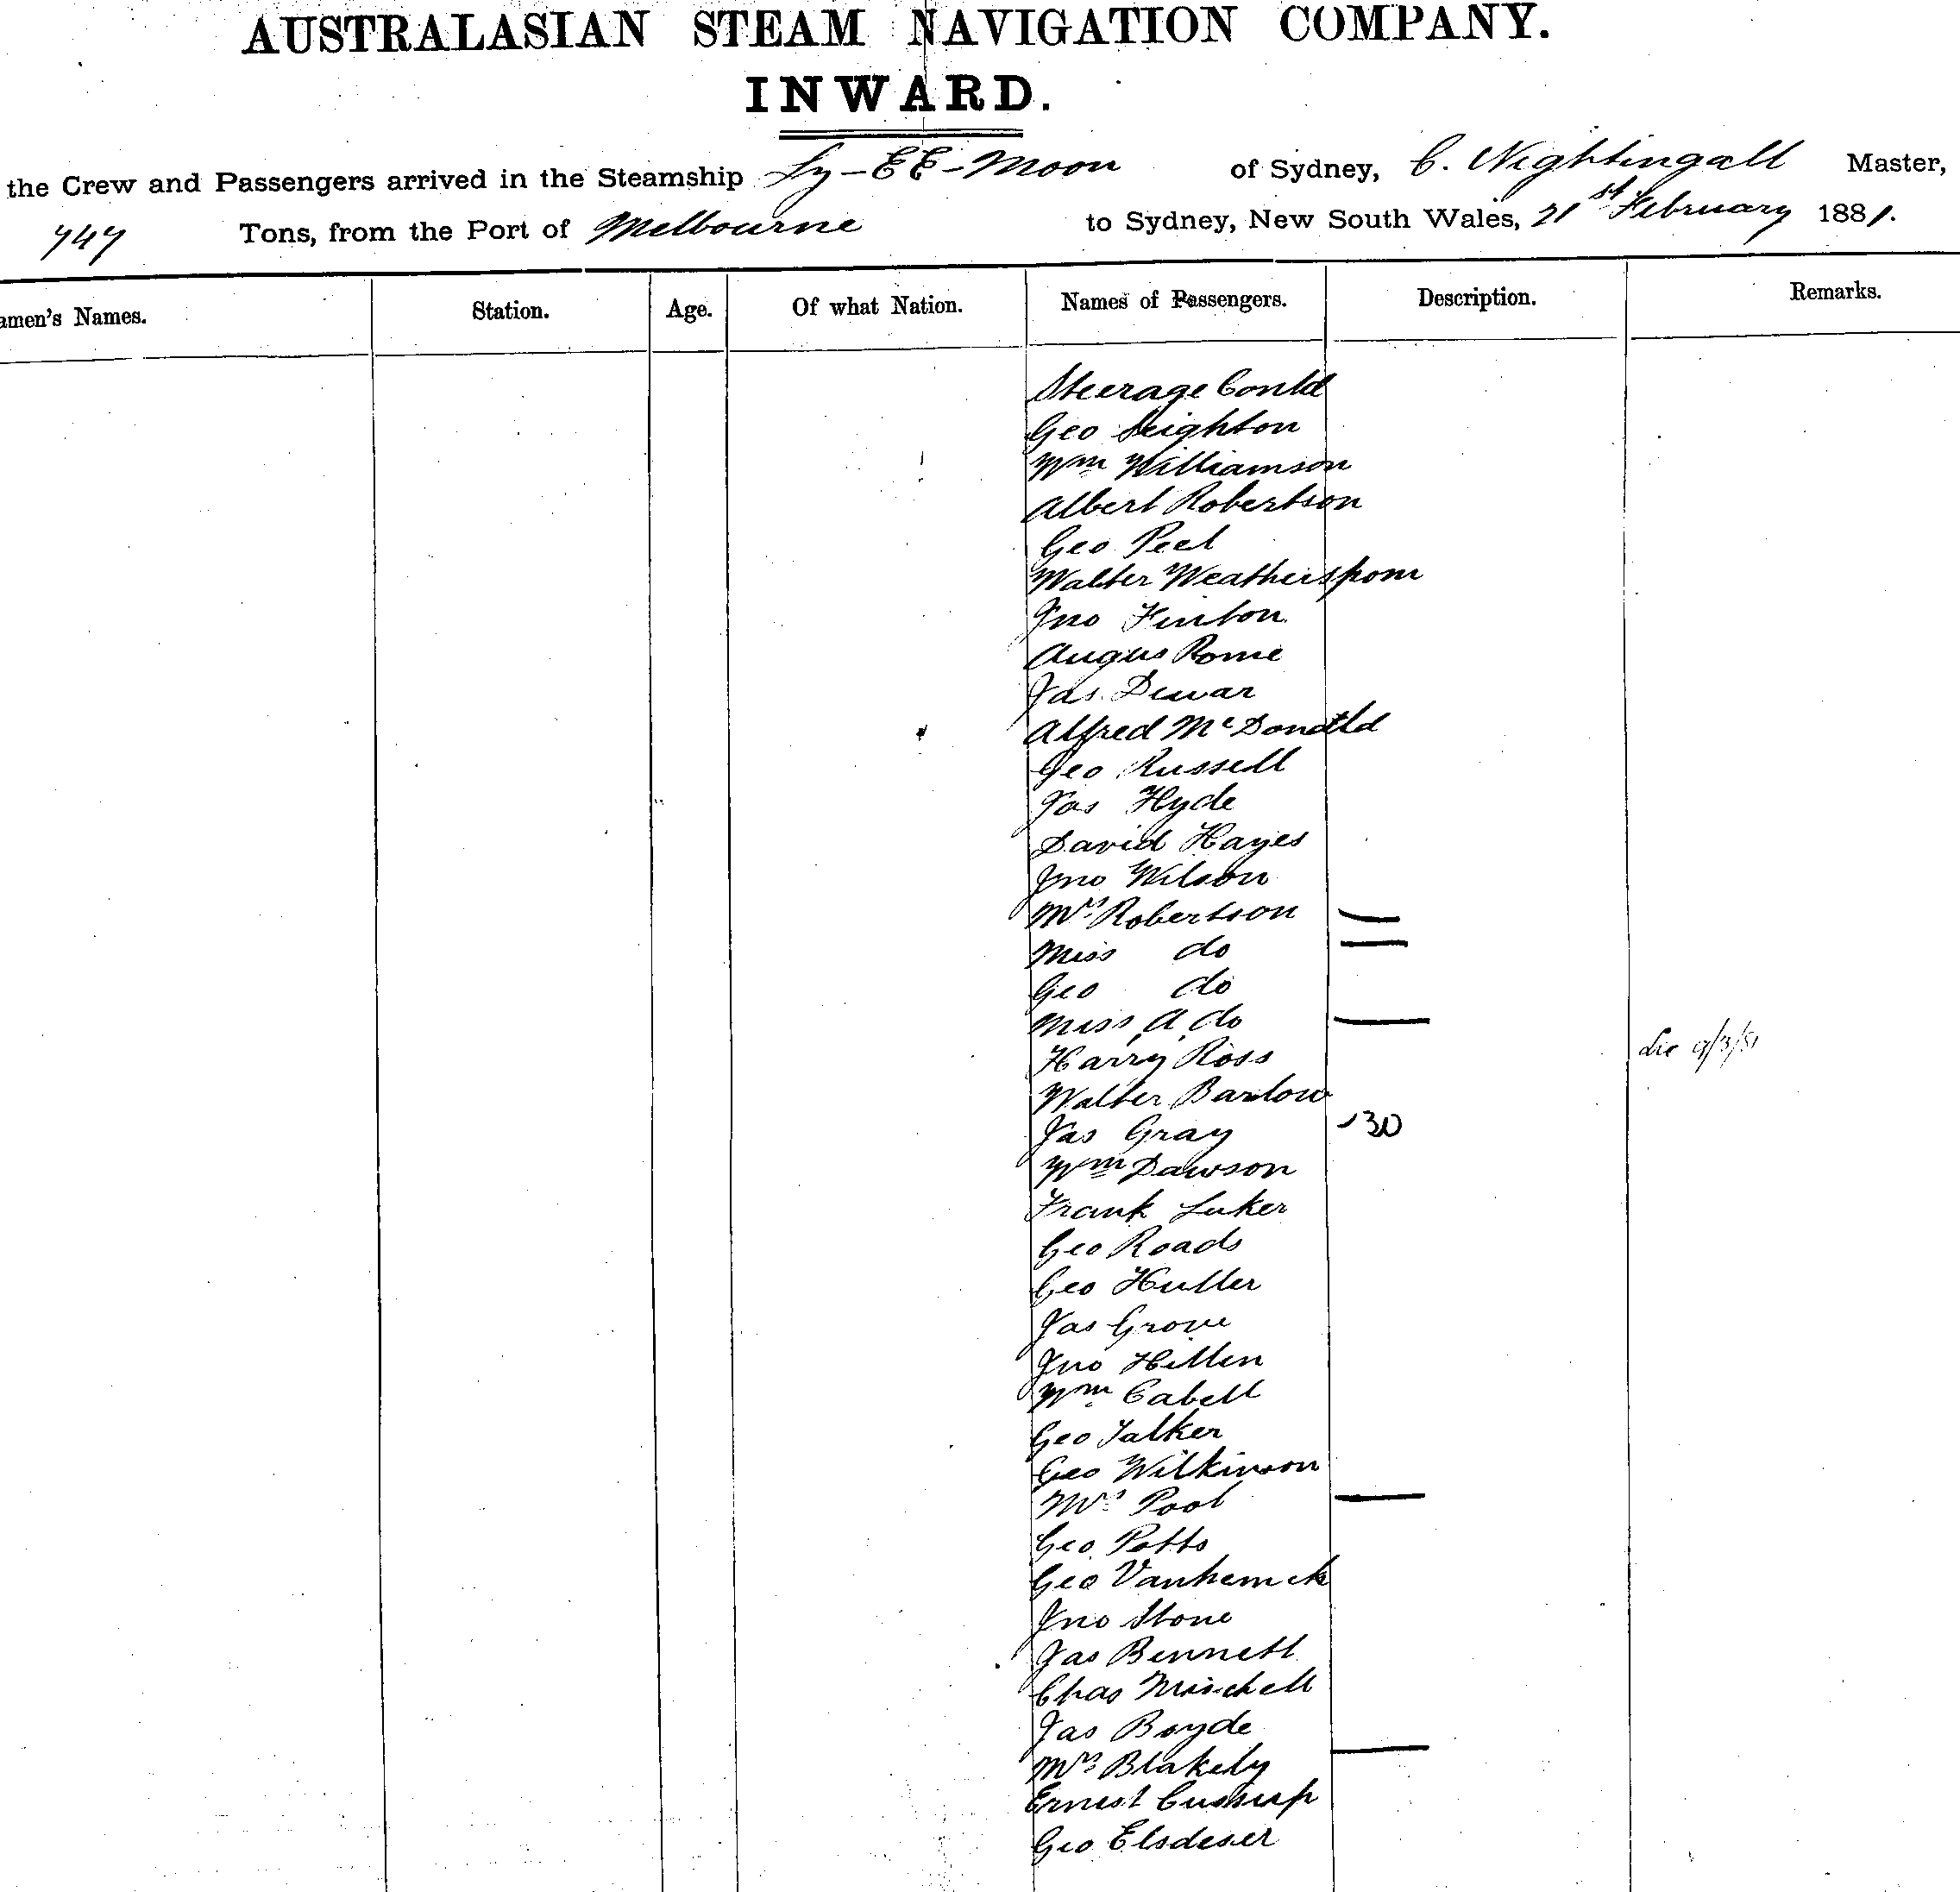 AUSTRALASIAN STEAM NAVIGATION COMPANY.
INWARD.
the Crew and Passengers arrived in the Steamship Ly-EE-Moon of Sydney, C. Nightingall Master,
747 Tons, from the Port of Melbourne to Sydney, New South Wales, 21st February 1881.
amen's Names. Station. Age. Of what Nation. Names of Passengers. Description. Remarks.
Steerage Contd
Geo Leighton
Wm Williamson
Albert Robertson
Geo Peel
Walter Weatherspom
Jno Finton
Angus Rome
Jas. Dewar
Alfred McDonald
Geo Russell
Jas Hyde
David Hayes
Jno Wilson
Mrs Robertson
Miss do
Geo do
Miss A do
Harry Ross
Walter Barlow
Jas Gray 30
Wm Dawson
Frank Luker
Geo Roads
Geo Hutler
Jas Grove
Jno Hillen
Wm Cabell
Geo Talker
Geo Wilkinson
Mrs Pool
Geo Potts
Geo
Jno Stone
Jas Bennett
Chas Mitchell
Jas Boyde
Mrs Blakely
Ernest
Geo